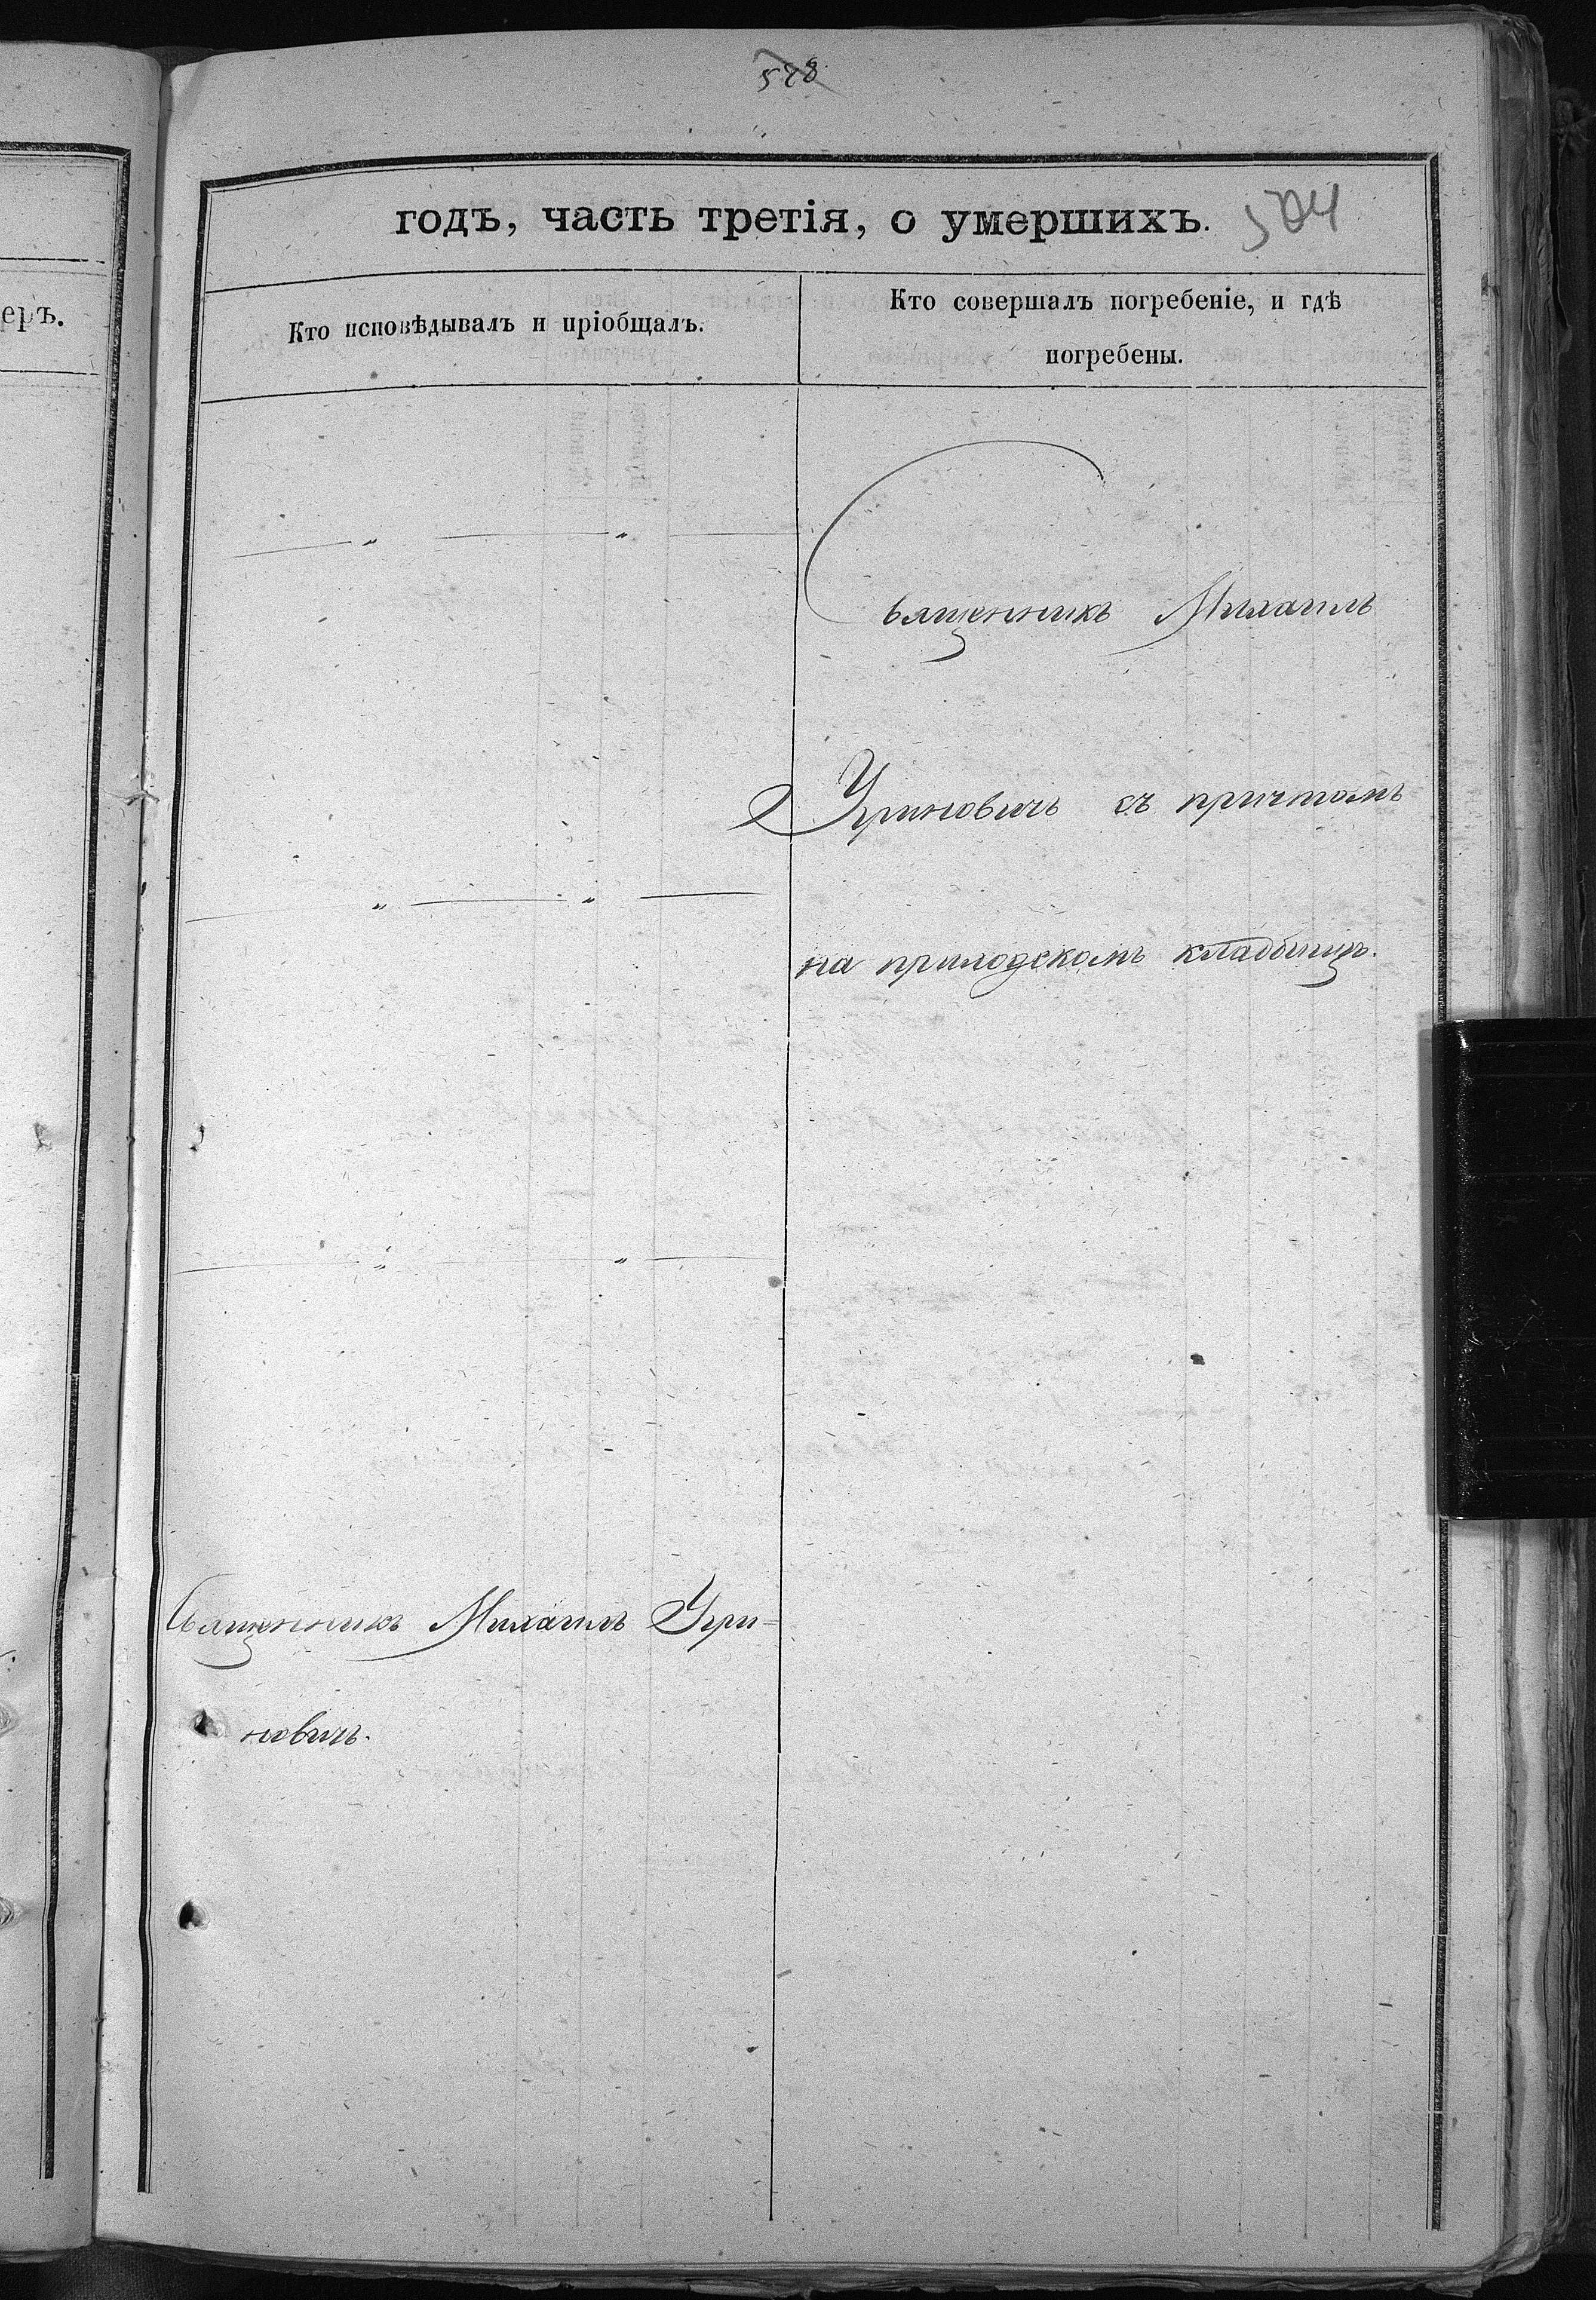 578
годъ, часть третія, о умершихъ. 504
еръ.
Кто исповѣдывалъ и пріобщалъ.
Кто совершалъ погребеніе, и гдѣ
погребены.
Священникъ Михаилъ
Угриновичъ съ причтомъ
на приходскомъ кладбищѣ.
Священникъ Михаилъ Угри=
новичъ.